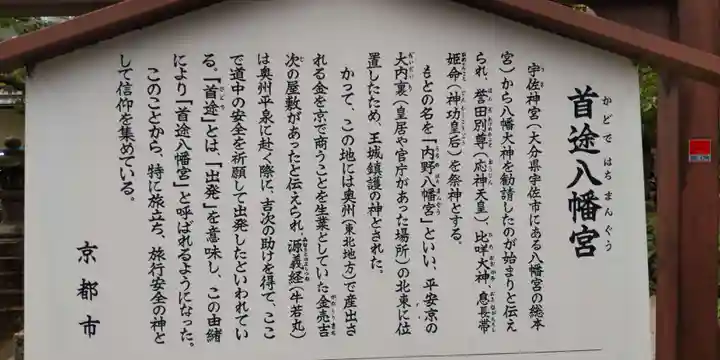 首途八幡宮
かどではちまんぐう
宇佐神宮(大分県宇佐市にある八幡宮の総本
宮)から八幡大神を勧請したのが始まりと伝え
られ、誉田別尊(応神天皇)、比咩大神、息長帯
姫命(神功皇后)を祭神とする。
もとの名を「内野八幡宮」といい、平安京の
大内裏(皇居や官庁があった場所)の北東に位
置したため、王城鎮護の神とされた。
かつて、この地には奥州(東北地方)で産出さ
れる金を京で商うことを生業としていた金売吉
次の屋敷があったと伝えられ、源義経(牛若丸)
は奥州平泉に赴く際に、吉次の助けを得て、ここ
で道中の安全を祈願して出発したといわれてい
る。「首途」とは、「出発」を意味し、この由緒
により「首途八幡宮」と呼ばれるようになった。
このことから、特に旅立ち、旅行安全の神と
して信仰を集めている。
京都市